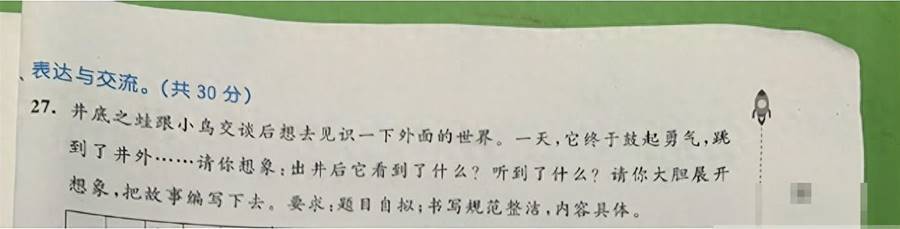 、表达与交流。(共 30 分)
27. 井底之蛙跟小鸟交谈后想去见识一下外面的世界。一天,它终于鼓起勇气,跳
到了井外……请你想象:出井后它看到了什么? 听到了什么? 请你大胆展开
想象,把故事编写下去。要求:题目自拟;书写规范整洁,内容具体。